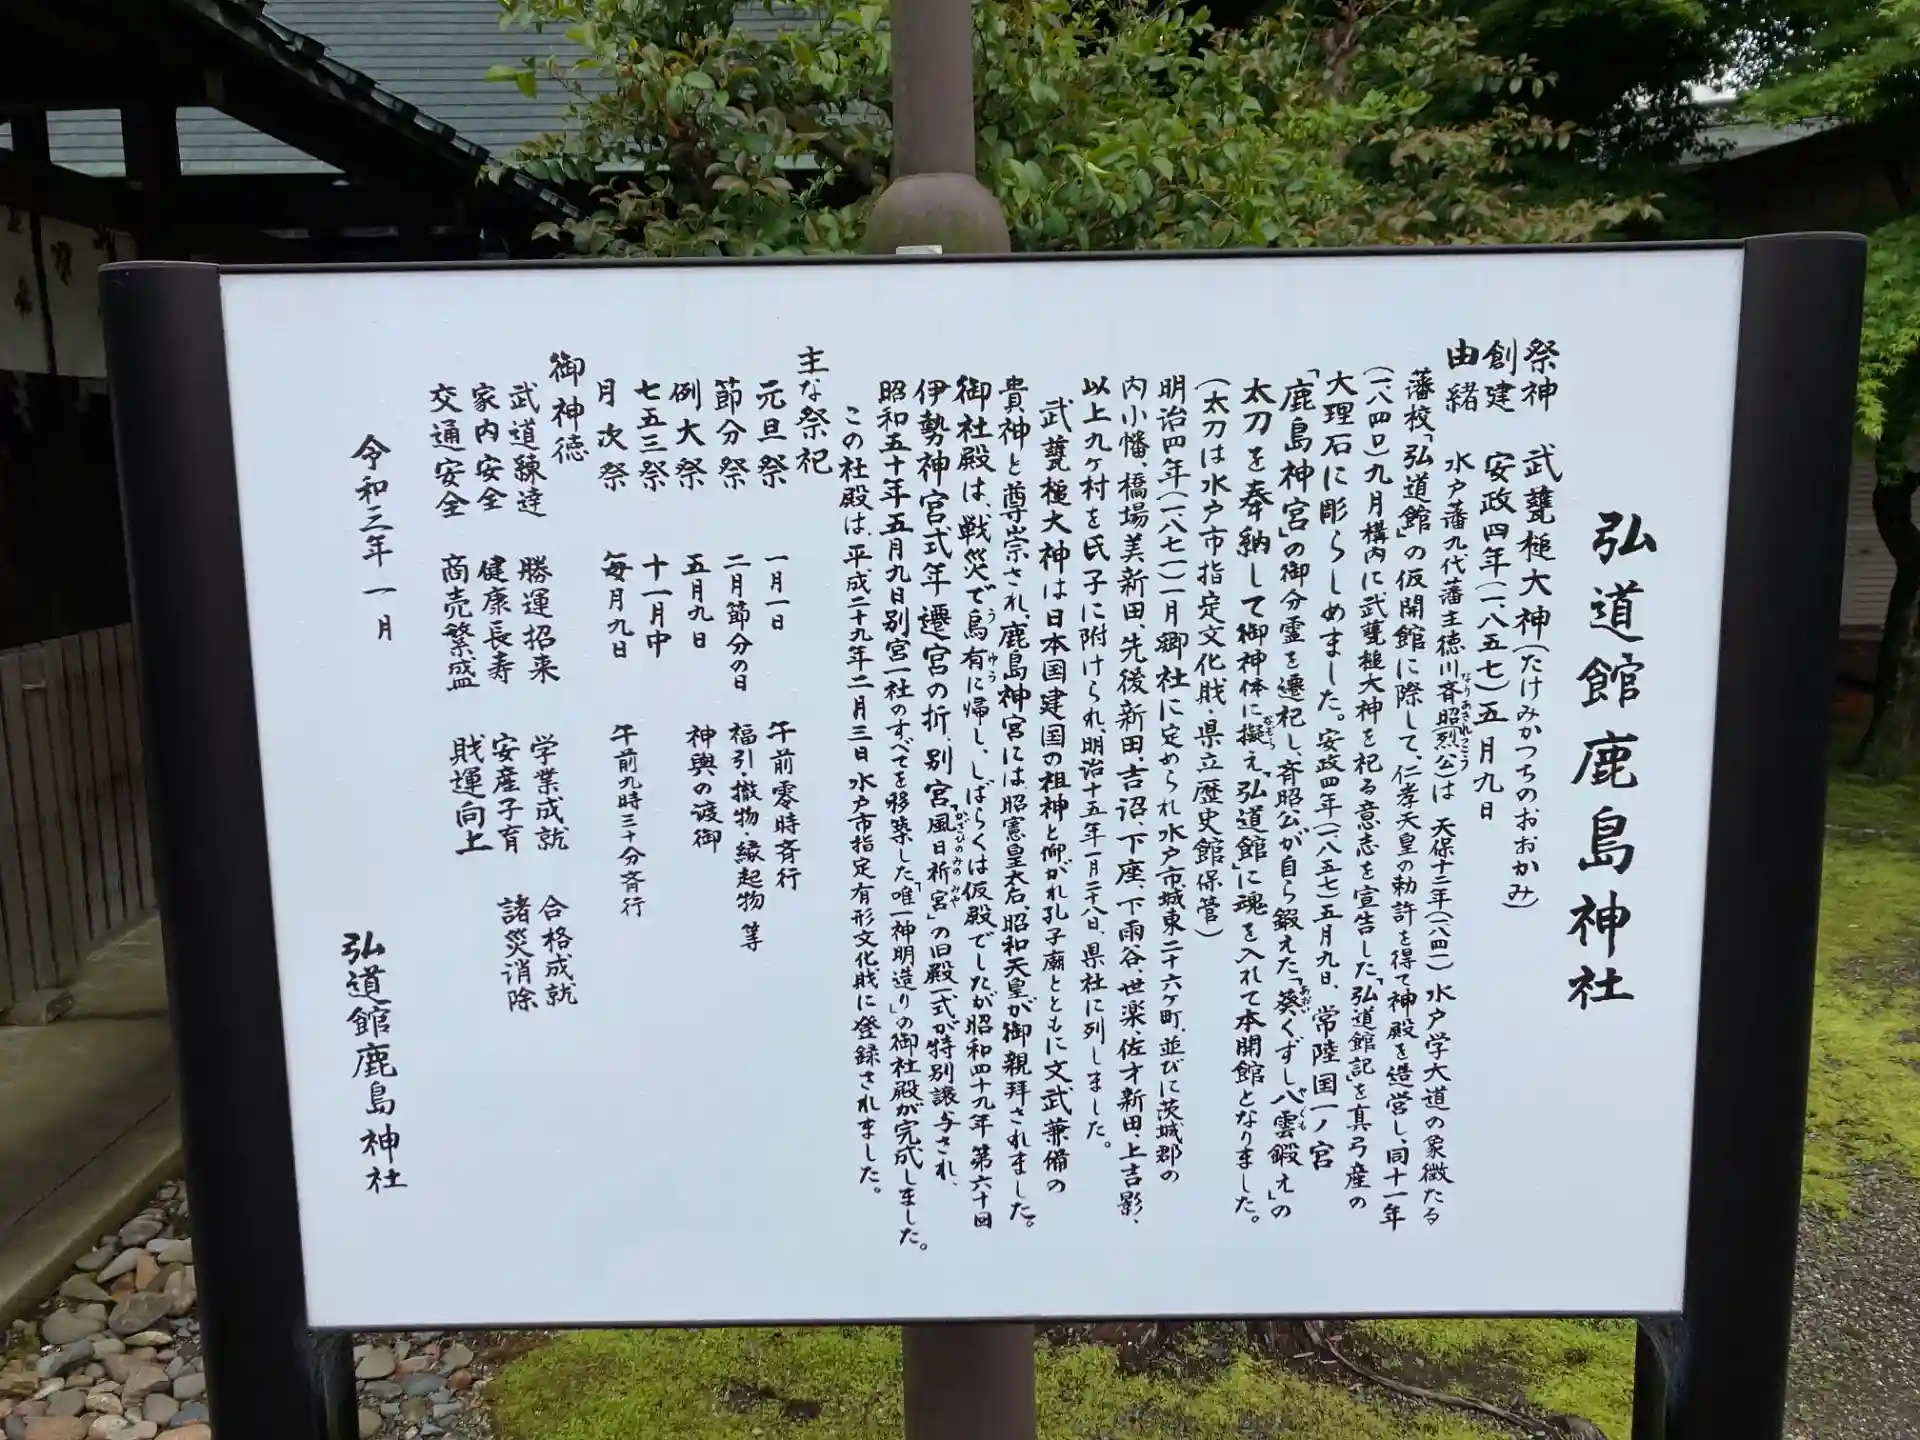 弘道館鹿島神社
祭神 武甕槌大神(たけみかつちのおおかみ)
創建 安政四年(一八五七)五月九日
由緒 水戸藩九代藩主徳川斉昭烈公(なりあきれっこう)は 天保十二年(一八四一) 水戸学大道の象徴たる
藩校「弘道館」の仮開館に際して、仁孝天皇の勅許を得て神殿を造営し、同十一年
(一八四〇)九月構内に武甕槌大神を祀る意志を宣告した「弘道館記」を真弓産の
大理石に彫らしめました。安政四年(一八五七)五月九日、常陸国一ノ宮
「鹿島神宮」の御分霊を遷祀し、斉昭公が自ら鍛えた「葵(あおい)くずし八雲(やくも)鍛え」の
太刀を奉納して御神体に擬(なぞら)え「弘道館」に魂を入れて本開館となりました。
(太刀は水戸市指定文化財・県立歴史館保管)
明治四年(一八七一)一月郷社に定められ水戸市城東二十六ヶ町、並びに茨城郡の
内小幡、橋場美新田、先後新田、吉沼、下座、下雨谷、世楽、佐才新田、上吉影、
以上九ヶ村を氏子に附けられ、明治十五年一月二十八日、県社に列しました。
武甕槌大神は日本国建国の祖神と仰がれ孔子廟とともに文武兼備の
貴神と尊崇され、鹿島神宮には昭憲皇太后、昭和天皇が御親拝されました。
御社殿は、戦災で烏(う)有(ゆう)に帰し、しばらくは仮殿でしたが昭和四十九年 第六十回
伊勢神宮式年遷宮の折、別宮「風日祈宮(かざひのみのみや)」の旧殿一式が特別譲与され、
昭和五十年五月九日別宮一社のすべてを移築した「唯一神明造り」の御社殿が完成しました。
この社殿は、平成二十九年二月三日水戸市指定有形文化財に登録されました。
主な祭祀
元旦祭 一月一日 午前零時斉行
節分祭 二月節分の日 福引・撤物・縁起物 等
例大祭 五月九日 神輿の渡御
七五三祭 十一月中
月次祭 毎月九日 午前九時三十分斉行
御神徳
武道練達 勝運招来 学業成就 合格成就
家内安全 健康長寿 安産子育 諸災消除
交通安全 商売繁盛 財運向上
令和三年一月
弘道館鹿島神社